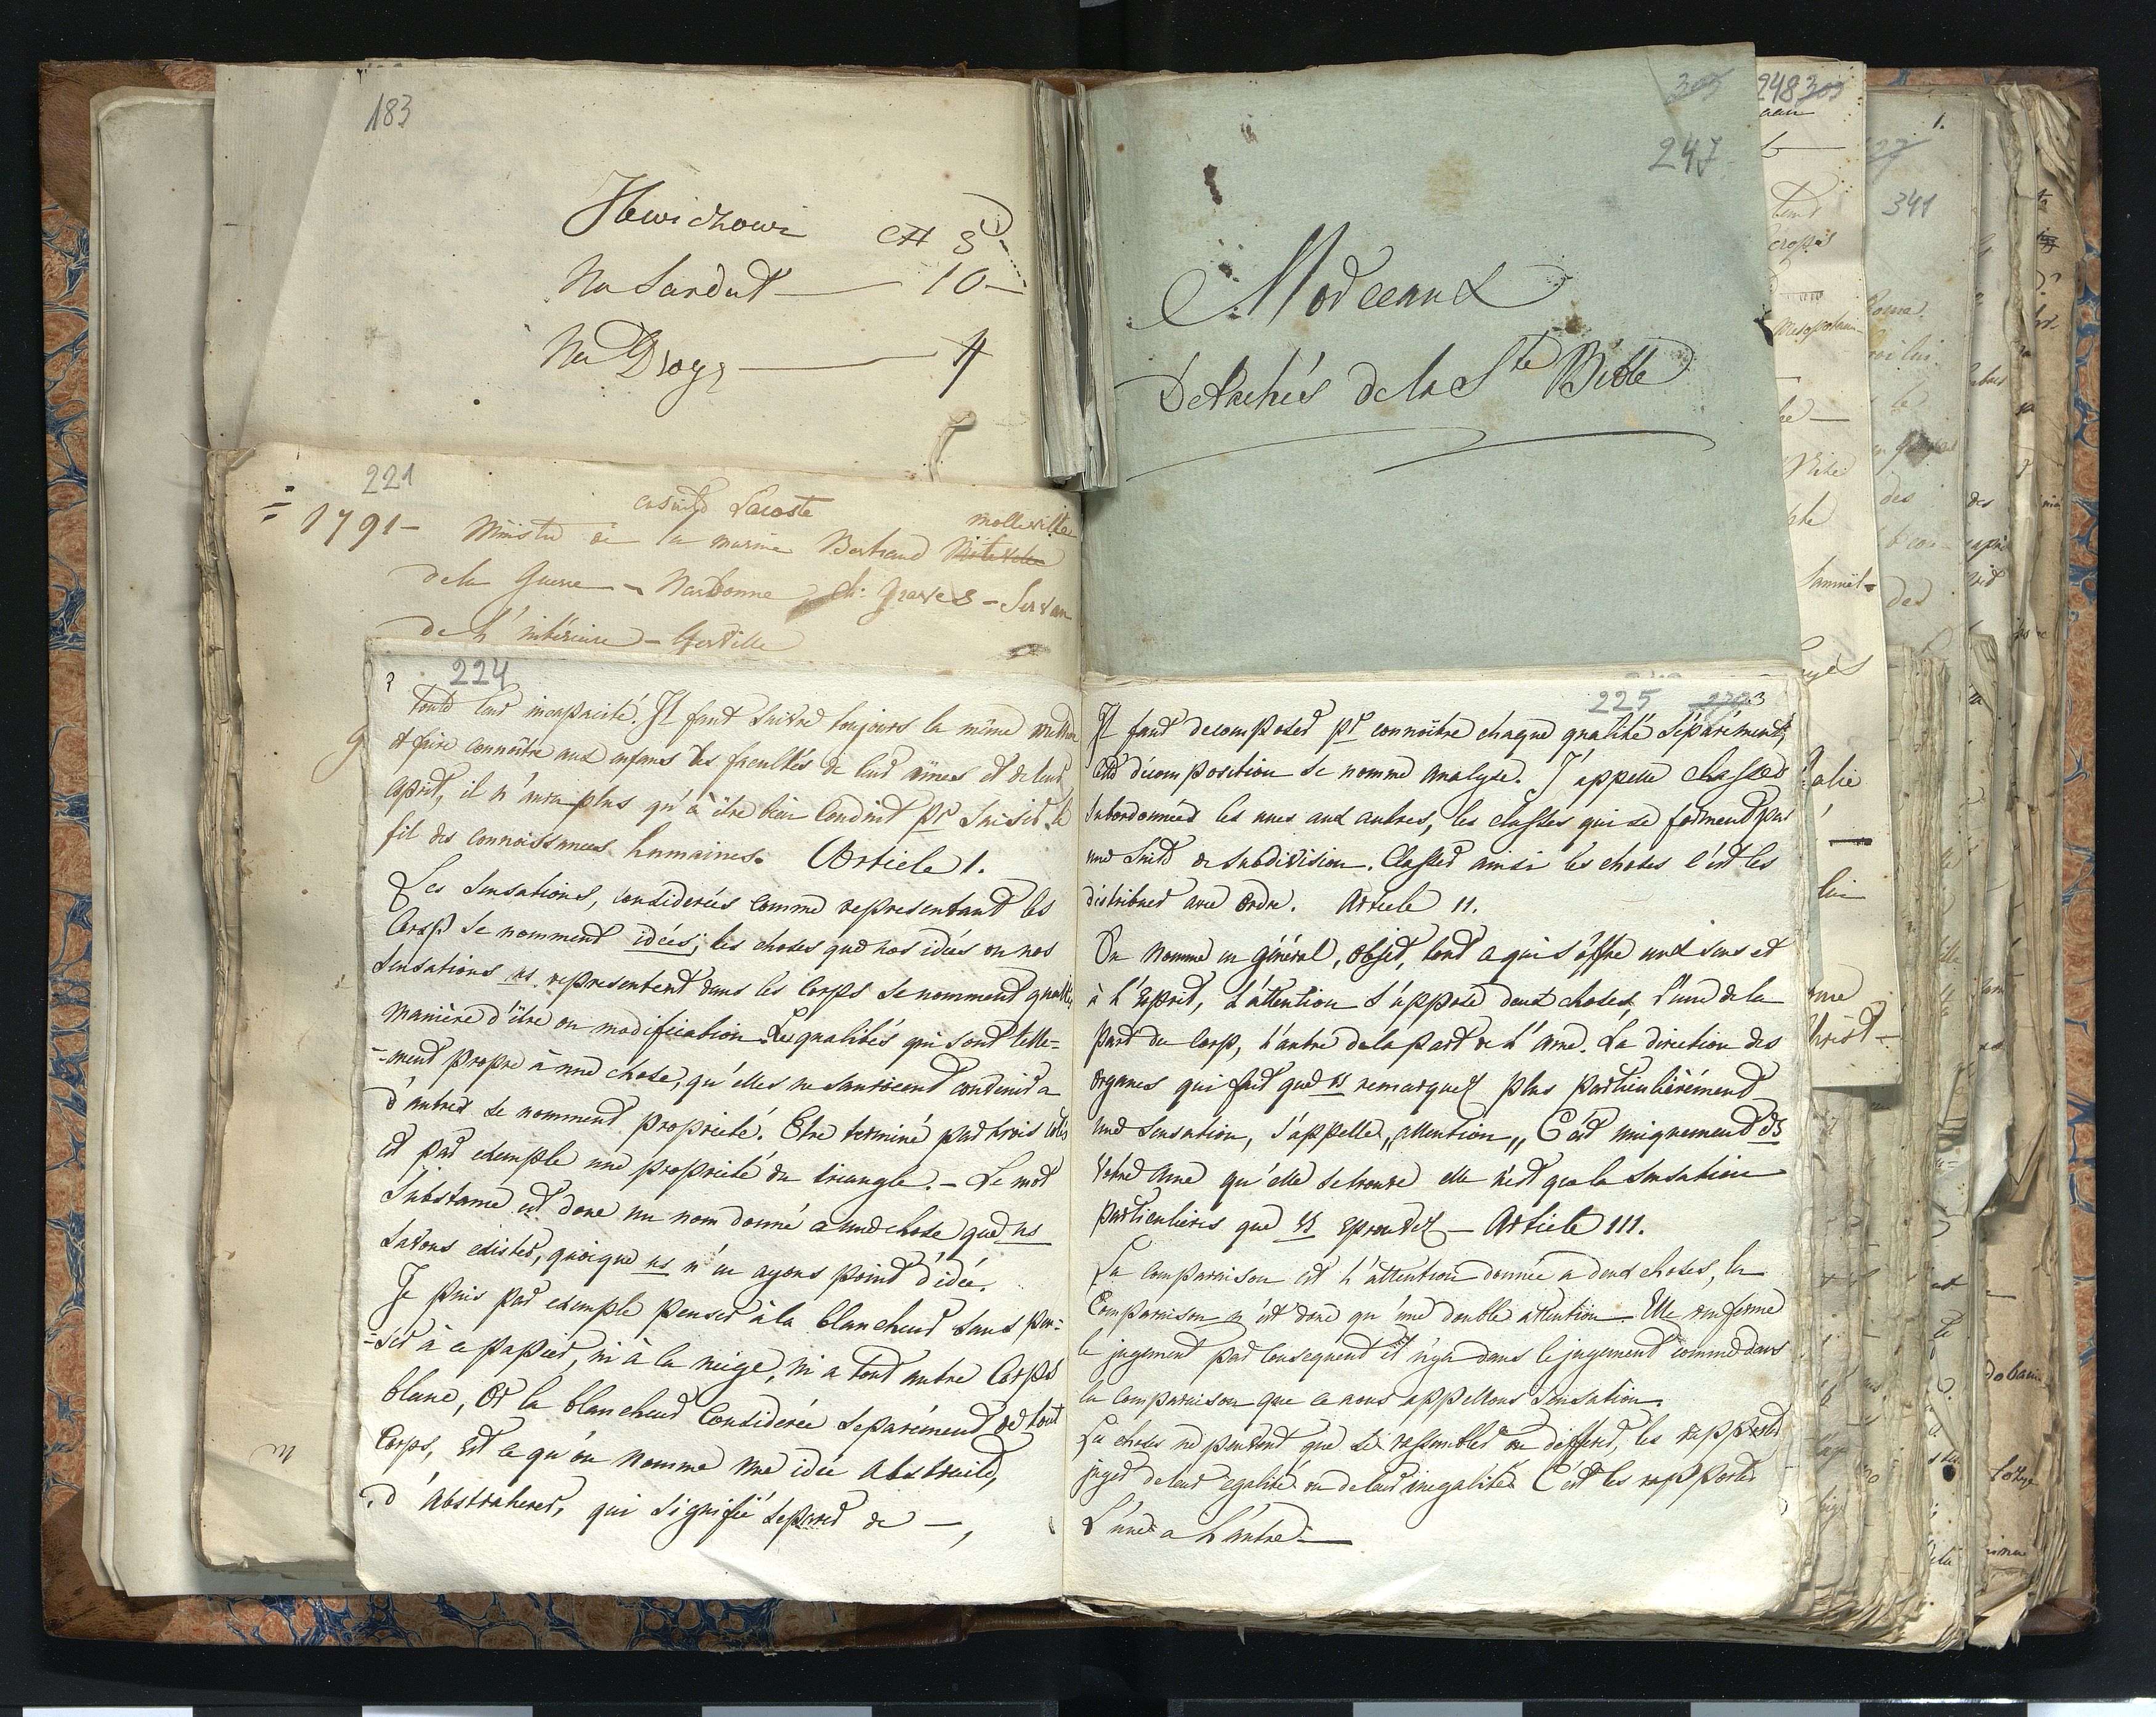 183
Na Sardat — 10 —
Na Drogę — 4
221
ensuite Lacoste
1791 - Ministre de la marine Bertrand molleville
de la Guerre - Narbonne de Graves - Servan
de l'intérieure - Gerville
224
toute leur incapacité. Il faut suivre toujours la même
et faire connoître aux enfans les facultés de leur âmes et de leur
esprit, il n'aura plus qu'à être bien conduit pr saisir le
fil des connoissances humaines. Article 1.
Les sensations, considerées comme representant les
Corps se nomment idées; les choses que nos idées ou nos
sensations ns. representent dans les Corps se nomment qualités,
manière d'être ou modification. Les qualités qui sont telle=
=ment propre à une chose, qu'elles ne sauroient convenir a
d'autres se nomment proprieté. Etre terminé par trois cotés
est par exemple une proprieté du triangle. - Le mot
Substance est donc un nom donné a une chose que ns
savons exister, quoique ns n'en ayons point d'idée.
Je puis par exemple penser à la blancheur sans pen=
=ser à ce papier, ni à la neige, ni a tout autre Corps
blanc, Or la blancheur Considerée separément de tout
Corps, est ce qu'on nomme une idée Abstraite,
d'Abstraherer, qui signifie separer de —,
225 3
Il faut decomposer pr connoître chaque qualité séparément,
cette décomposition se nomme analyse. J'appelle classes
subordonnées les unes aux autres, les classes qui se forment par
une suite de subdivision. Classer ainsi les choses c'est les
distribuer avec ordre. Article 11.
On nomme en général, objet, tout ce qui s'offre aux sens et
à l'Esprit, L'attention s'uppose deux choses, l'une de la
part du Corp, l'autre de la part de l'ame. La direction des
organes qui fait que vs remarquez plus particulièrément
une sensation, s'appelle „attention„ C'est uniquement ds
votre ame qu'elle se trouve elle n'est que la sensation
particulières que vs éprouvez — Article 111.
La comparaison est l'attention donnée a deux choses, la
Comparaison n'est donc qu'une double attention. Elle renferme
le jugement par Consequent il n'ya dans le jugement comme dans
la comparaison que ce nous appellons sensation.
Les choses ne peuvent que se ressembler ou differer, les rapporter
juger de leur egalité ou de leur inegalité C'est les rapporter
L'une a l'autre —
247
Morceaux
Détachés de la Ste Bible
248
341
1.